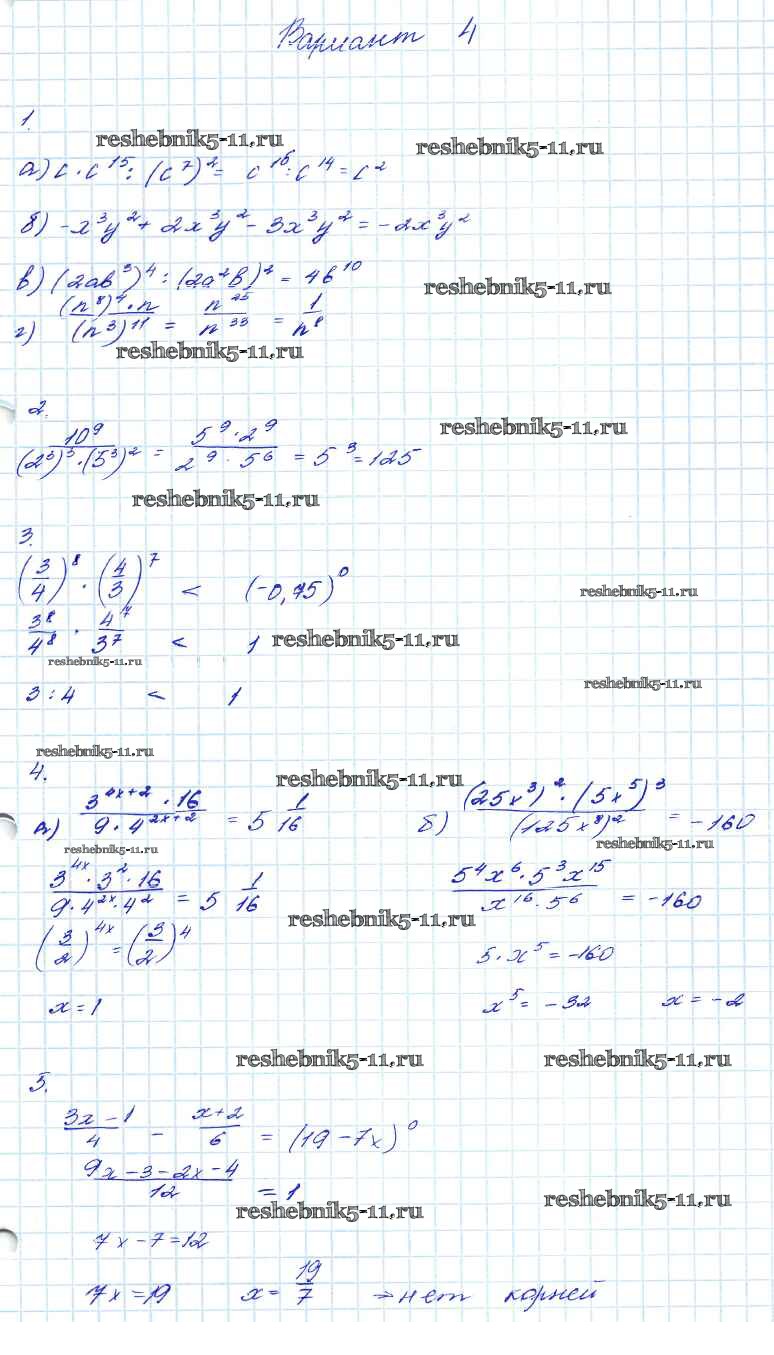 Вариант 4
1.
reshebnik5-11.ru
reshebnik5-11.ru
а) c · c¹⁵ : (c⁷)² = c¹⁶ : c¹⁴ = c²
б) -x³y² + 2x³y² - 3x³y² = -2x³y²
в) (2ab³)⁴ : (2a²b)² = 4b¹⁰
reshebnik5-11.ru
г) (n⁸)⁴ · n / (n³)¹¹ = n²⁵ / n³³ = 1 / n⁸
reshebnik5-11.ru
2.
reshebnik5-11.ru
10⁹ / (2³)³ · (5³)² = 5⁹ · 2⁹ / 2⁹ · 5⁶ = 5³ = 125
reshebnik5-11.ru
3.
(3/4)⁸ · (4/3)⁷ < (-0,75)⁰
reshebnik5-11.ru
3⁸/4⁸ · 4⁷/3⁷ < 1
reshebnik5-11.ru
reshebnik5-11.ru
3 : 4 < 1
reshebnik5-11.ru
reshebnik5-11.ru
4.
reshebnik5-11.ru
а) 3⁴ˣ⁺² · 16 / 9 · 4²ˣ⁺² = 5 1/16
б) (25x³)² · (5x⁵)³ / (125x⁸)² = -160
reshebnik5-11.ru
reshebnik5-11.ru
3⁴ˣ · 3² · 16 / 9 · 4²ˣ · 4² = 5 1/16
5⁴x⁶ · 5³x¹⁵ / x¹⁶ · 5⁶ = -160
reshebnik5-11.ru
(3/2)⁴ˣ = (3/2)⁴
5 · x⁵ = -160
x = 1
x⁵ = -32 x = -2
reshebnik5-11.ru
reshebnik5-11.ru
5.
3x - 1 / 4 - x + 2 / 6 = (19 - 7x)⁰
9x - 3 - 2x - 4 / 12 = 1
reshebnik5-11.ru
reshebnik5-11.ru
7x - 7 = 12
7x = 19 x = 19/7 → нет корней